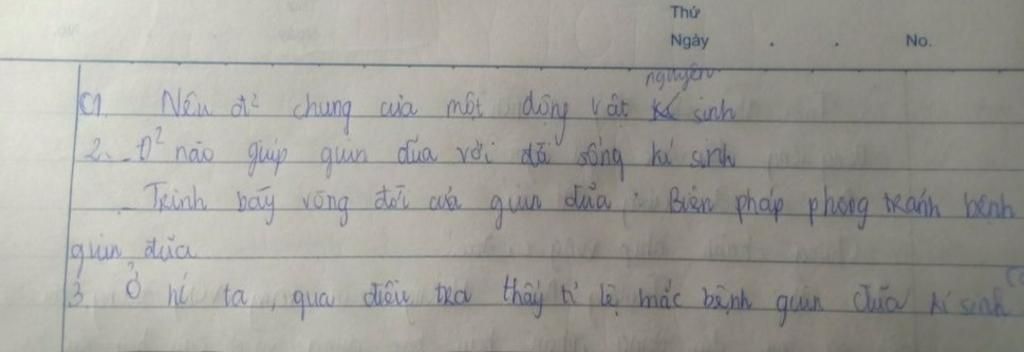 Thứ
Ngày . . No.
nguyên
C1. Nêu đ² chung của một động vật sinh
2. - Đ² nào giúp giun đũa với đ/s sống kí sinh
- Trình bày vòng đời của giun đũa. Biện pháp phòng tránh bệnh
giun đũa
3. Ở ta, qua điều tra thấy tỉ lệ mắc bệnh giun đũa kí sinh